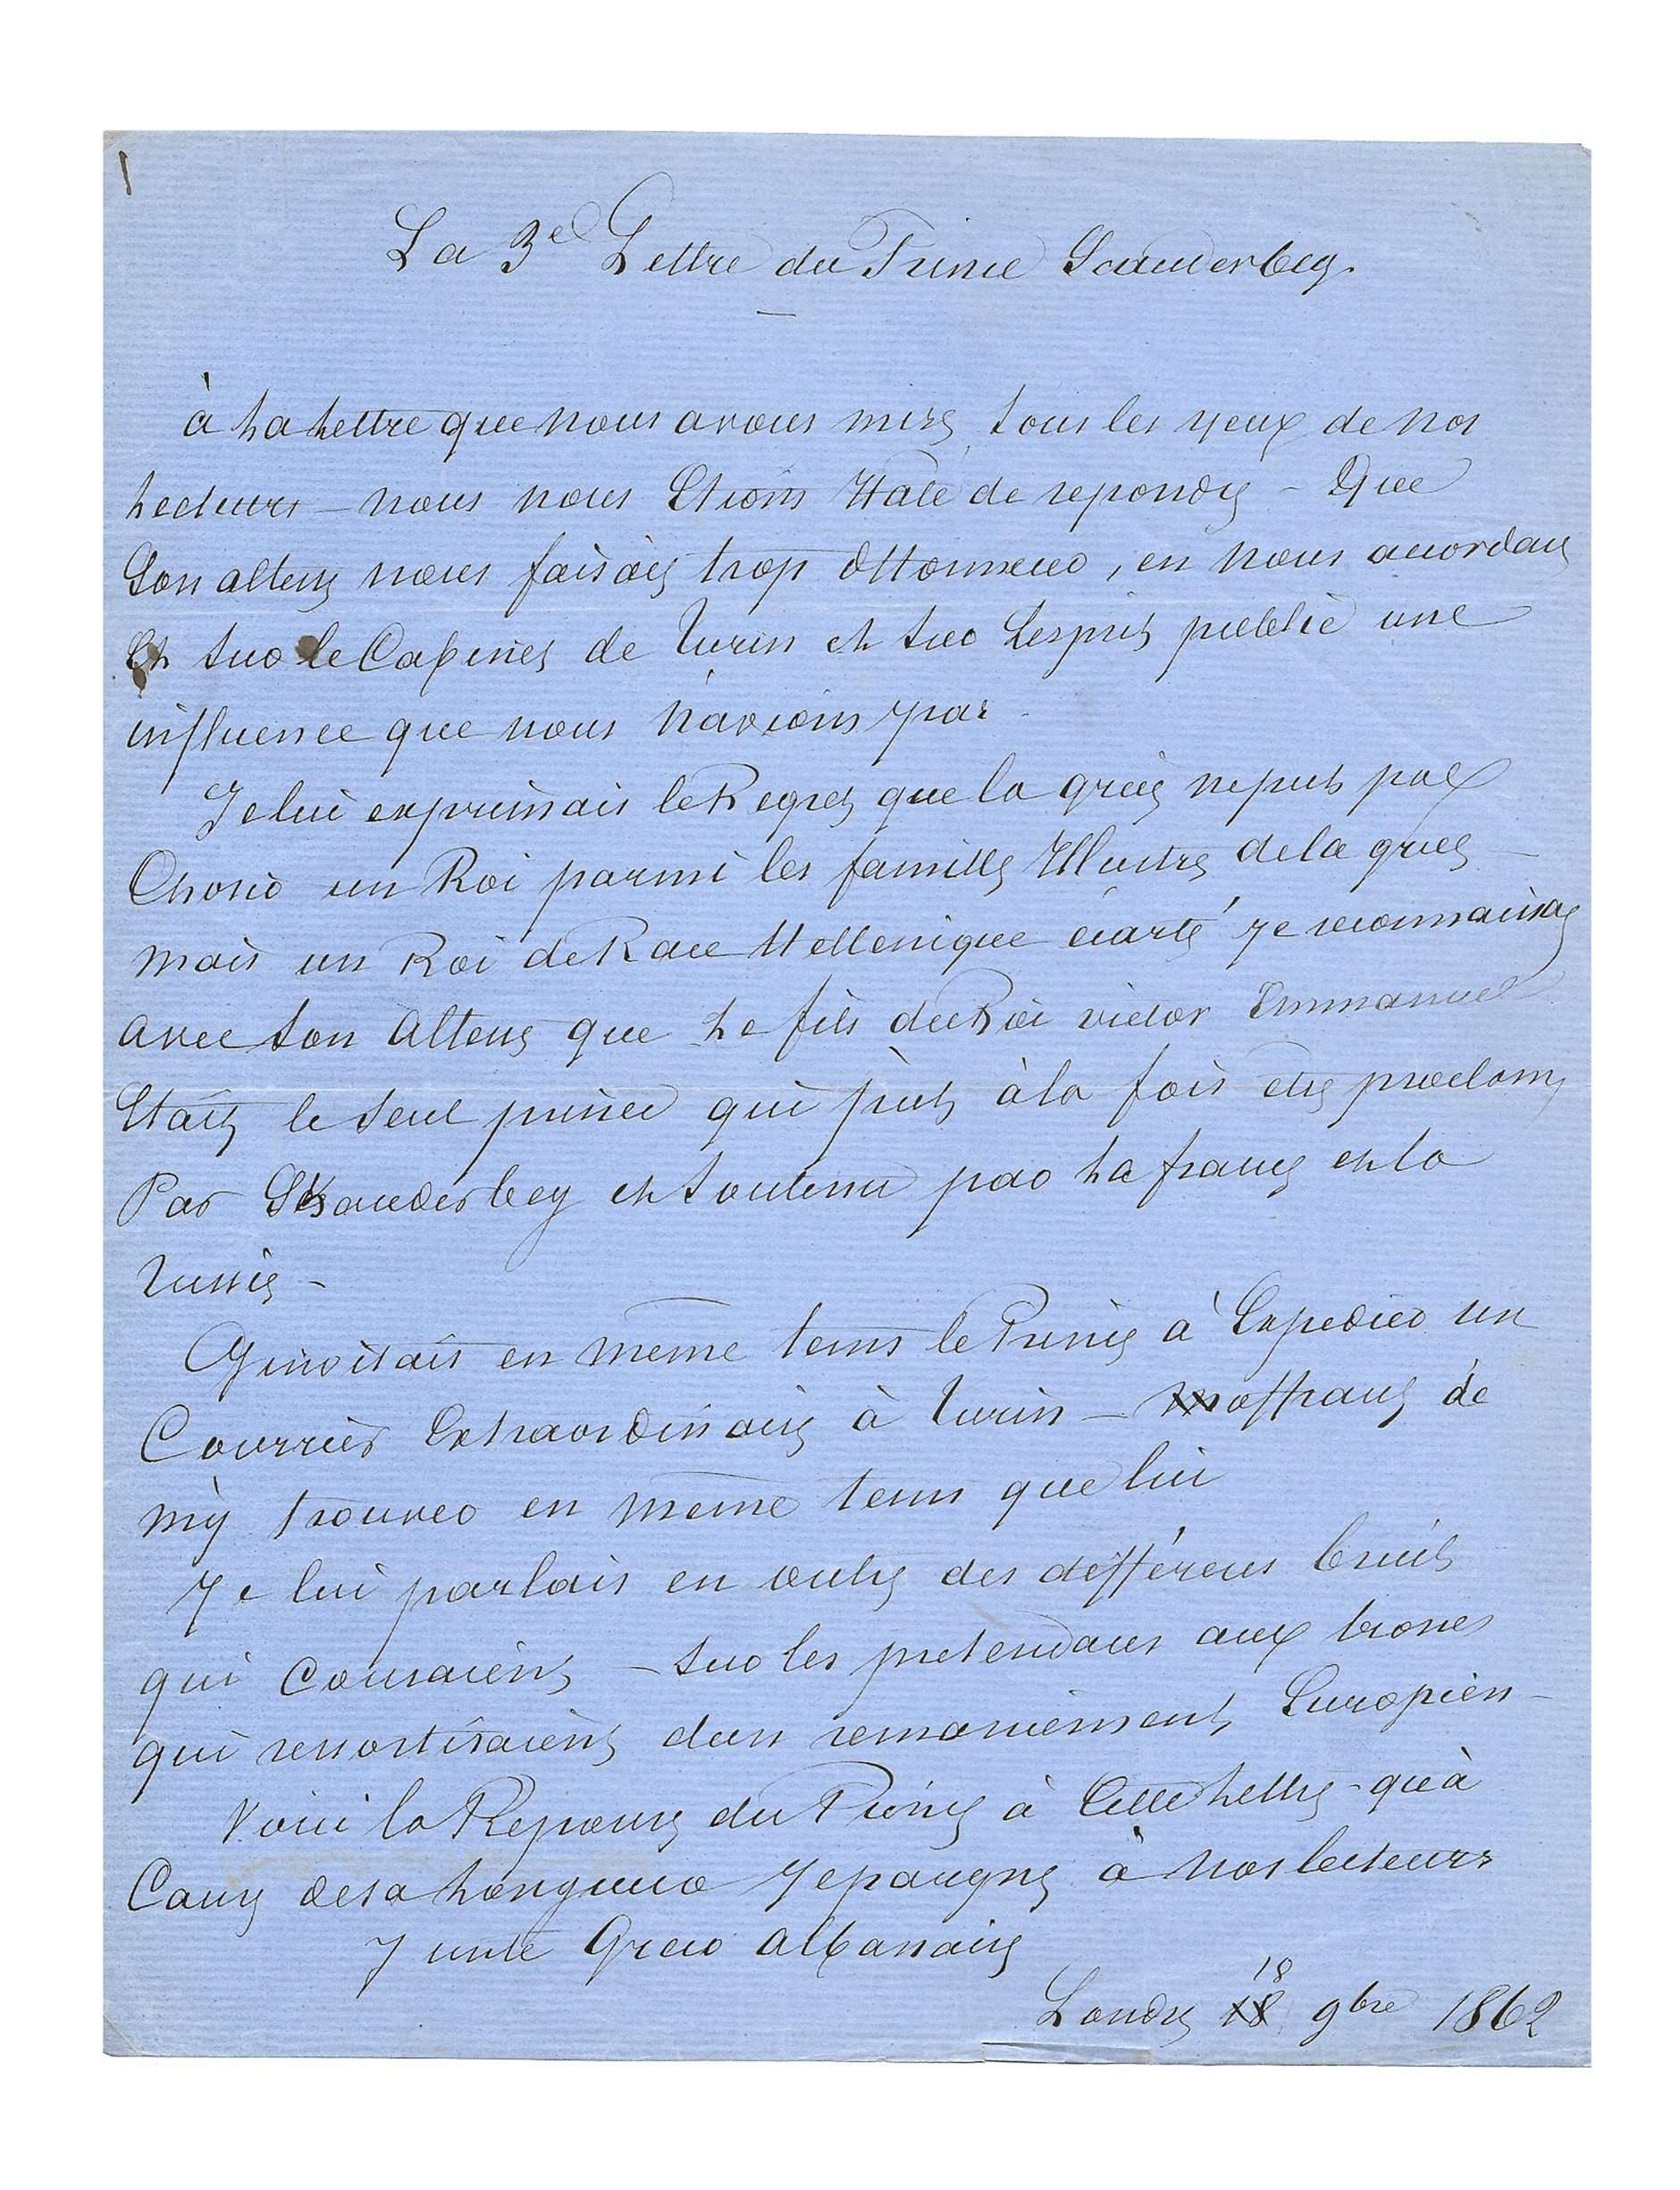 1
La 3e Lettre du Prince Scanderbeg.
à La Lettre que nous avons mise sous les yeux de nos
Lecteurs – nous nous Etions Haté de repondre – Que
Son altesse nous faisait trop d'Honneur, en nous accordant
Et sur le Cabinet de Turin et sur Lesprit publié une
influence que nous n'avions pas –
Je lui exprimais le Regret que la grèce ne put pas
Choisir un Roi parmi les familles Illustres de la grece –
mais un Roi de Race Hellenique écarté je reconnaissais
avec son Altesse que Le fils du Roi victor Emmanuel
Etait le seul prince qui put à la fois être proclamé
Par Skanderbeg et Soutenu par La france et la
russie –
J'invitais en meme tems le Prince à Expedier un
Courrier Extraordinaire à turin – m'offrant de
m'y trouver en meme tems que lui
Je lui parlais en outre des différens bruits
qui Couraient – sur les pretendans aux trones
qui ressortiraient d'un remaniement Européen –
Voici la Reponse du Prince à Cette Lettre – qu'à
Cause de sa Longueur J'epargne à nos lecteurs
Junte Greco albanaise
18
Londres 18 9bre 1862